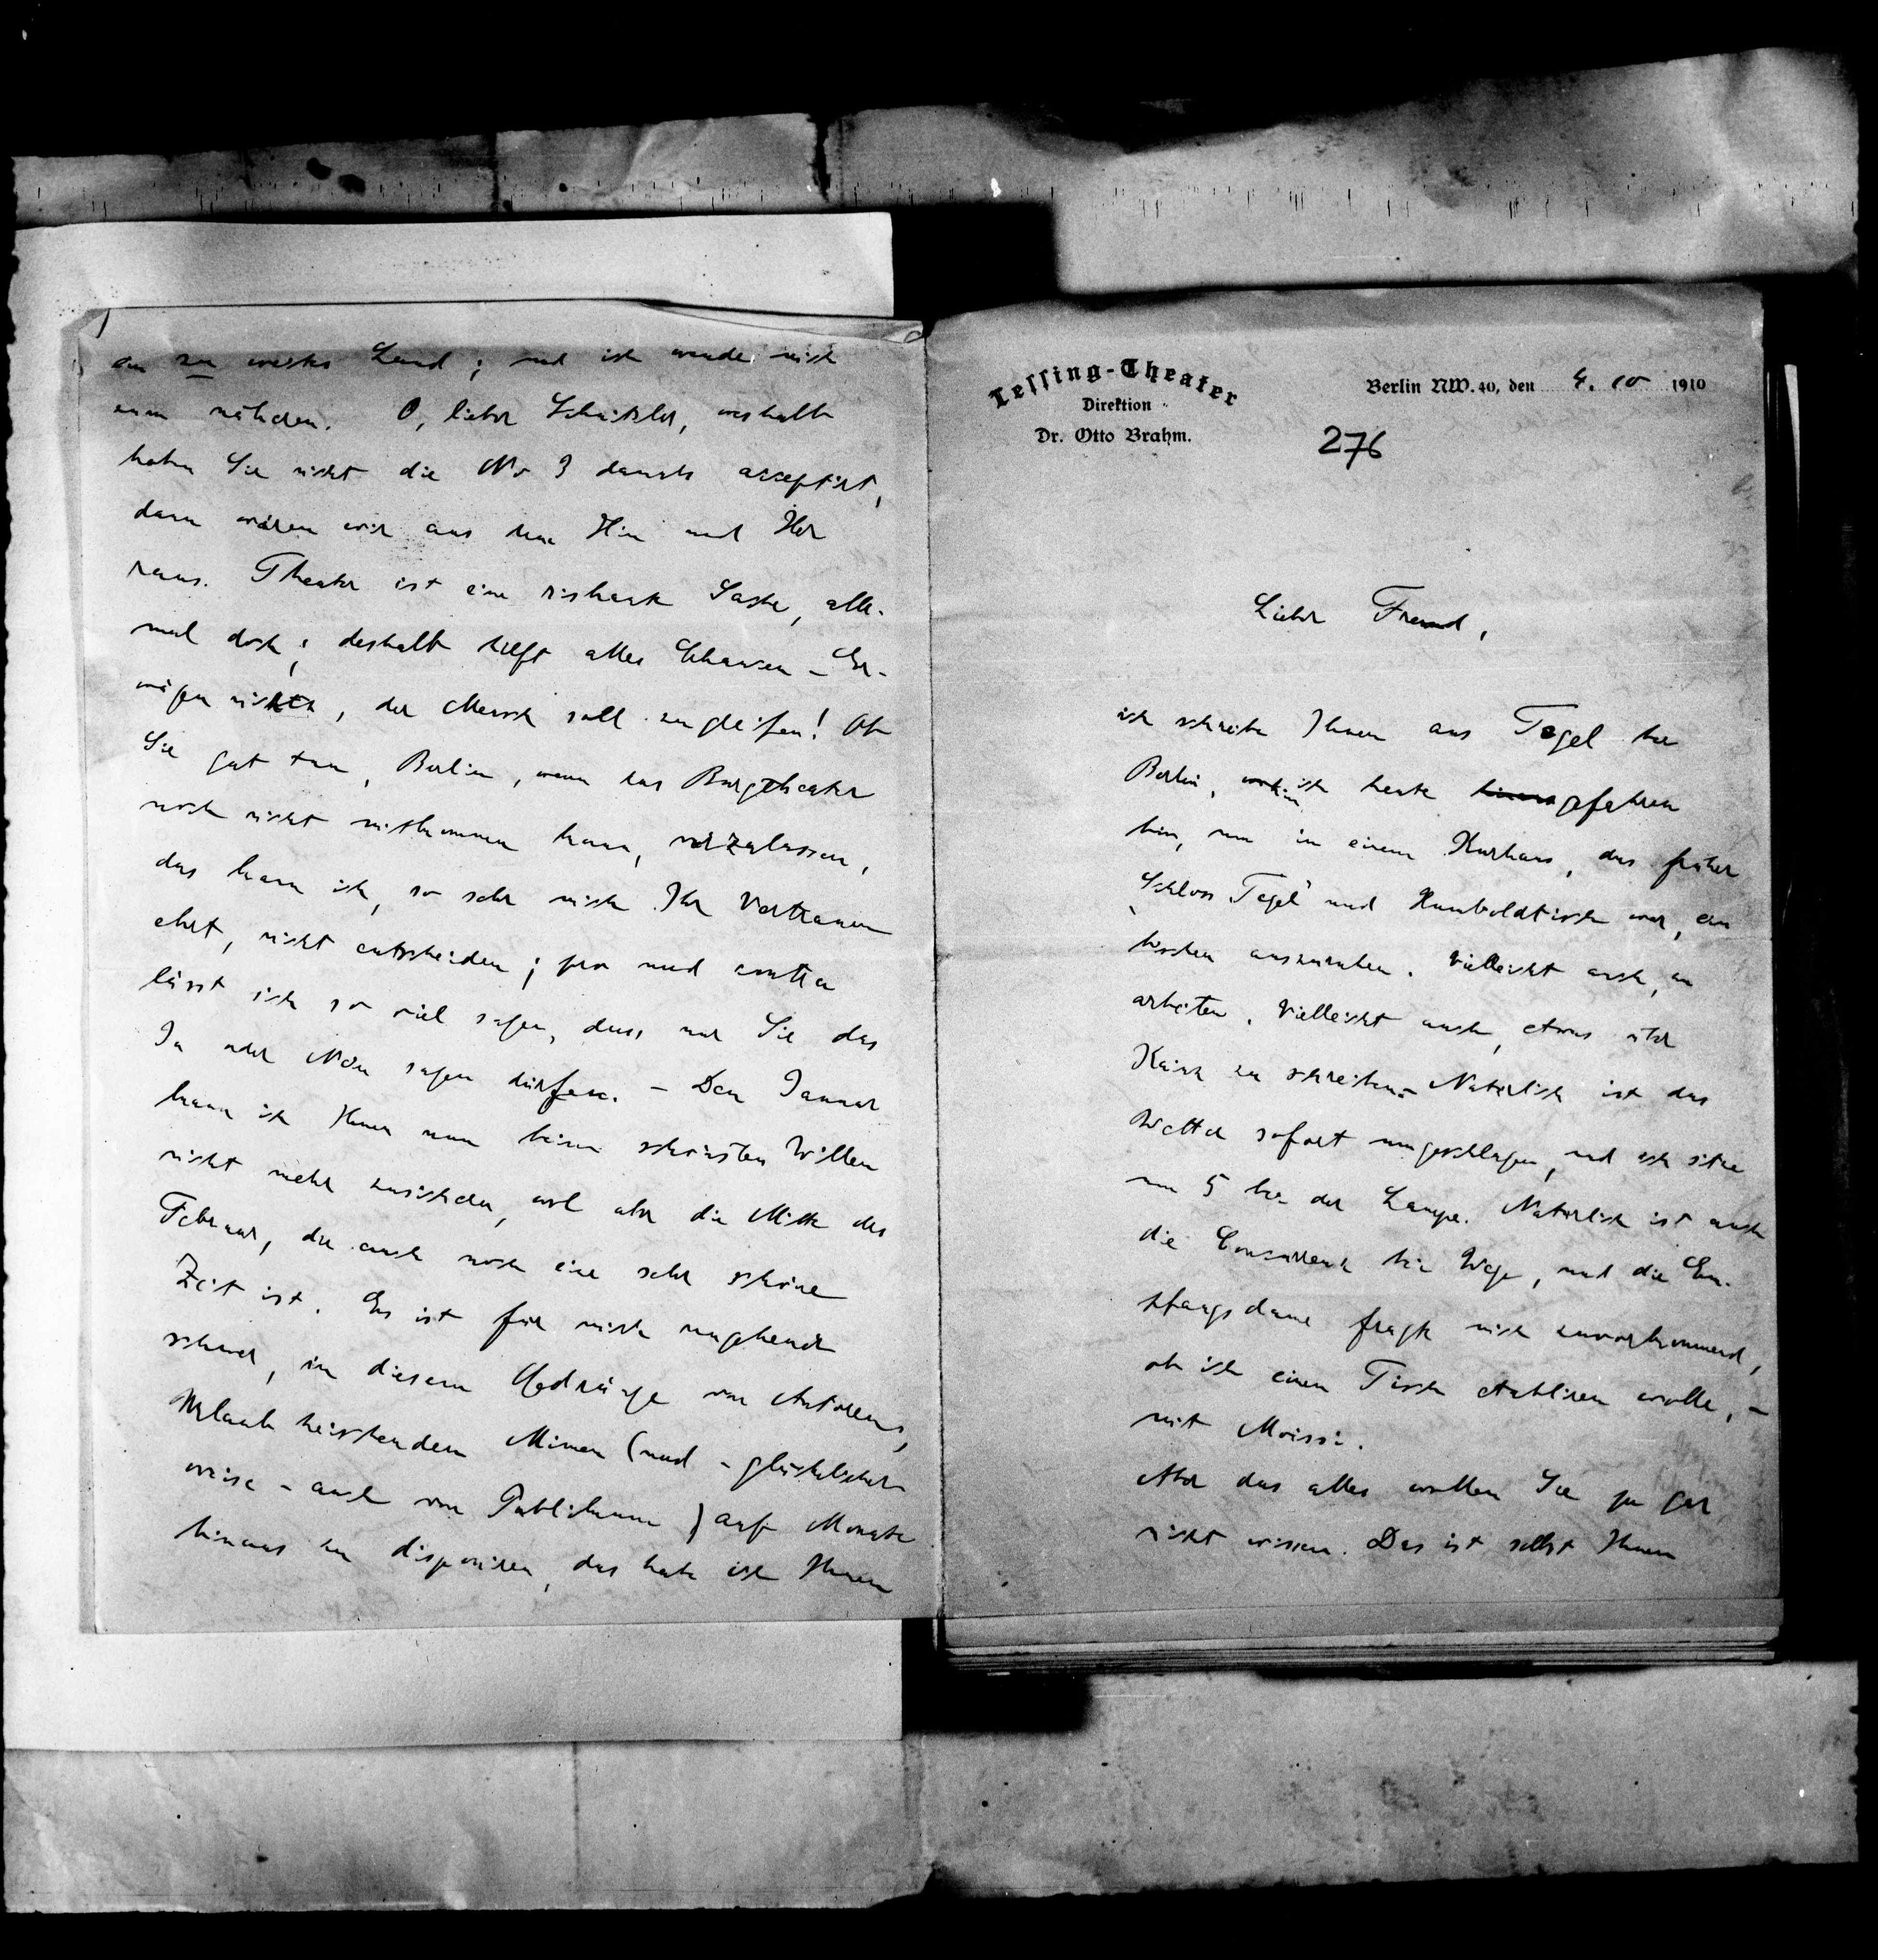 ein zu weites Land; und ich werde mich
zum nähern. O, lieber Schnitzler, weshalb
haben Sie nicht die No 3 damals acceptirt,
dann wären wir aus dem Hin und Her
raus. Theater ist eine riskante Sache, alle-
mal doch; deshalb hilft alles Schauen – Er-
wägen nichts, der Mensch soll zugreifen! Ob
Sie gut tun, Berlin, wenn das Burgtheater
noch nicht mitkommen kann, vorzulassen,
das kann ich, so sehr mich Ihr Vertrauen
ehrt, nicht entscheiden; pro und contra
lässt sich so viel sagen, dass nur Sie das
Ja oder Nein sagen dürfen. – Den Januar
kann ich Ihnen nun beim schönsten Willen
nicht mehr zusichern, wol aber die Mitte des
Februar, die auch noch eine sehr schöne
Zeit ist. Es ist für mich ungeheuer
schwer, in diesem Gedränge von Autoren,
Urlaub heischenden Mimen (und – glücklicher
weise – auch von Publikum) auf Monate
hinaus zu disponiren, das habe ich Ihnen
Lessing-Theater
Direktion
Dr. Otto Brahm.
Berlin NW. 40, den 4. 10 1910
276
Lieber Freund,
ich schreibe Ihnen aus Tegel bei
Berlin, wohin ich heute hinausgefahren
bin, um in einem Kurhaus, das früher
„Schloss Tegel“ und Humboldtisch war, ein
bischen auszuruhen. Vielleicht auch, zu
arbeiten. Vielleicht auch, etwas über
Kainz zu schreiben. – Natürlich ist das
Wetter sofort umgeschlagen, und ich sitze
um 5 bei der Lampe. Natürlich ist auch
die Concurrenz bei Wege, und die Em-
pfangsdame fragte mich zuvorkommend,
ob ich einen Tisch etabliren wolle, –
mit Moissi.
Aber das alles wollen Sie ja gar
nicht wissen. Das ist selbst Ihnen